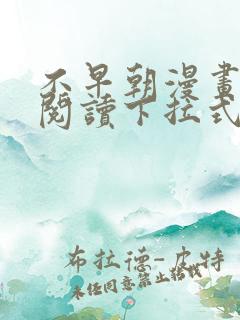 不早朝漫畫
閱讀下拉式
布拉德-皮特
未经同意禁止转载